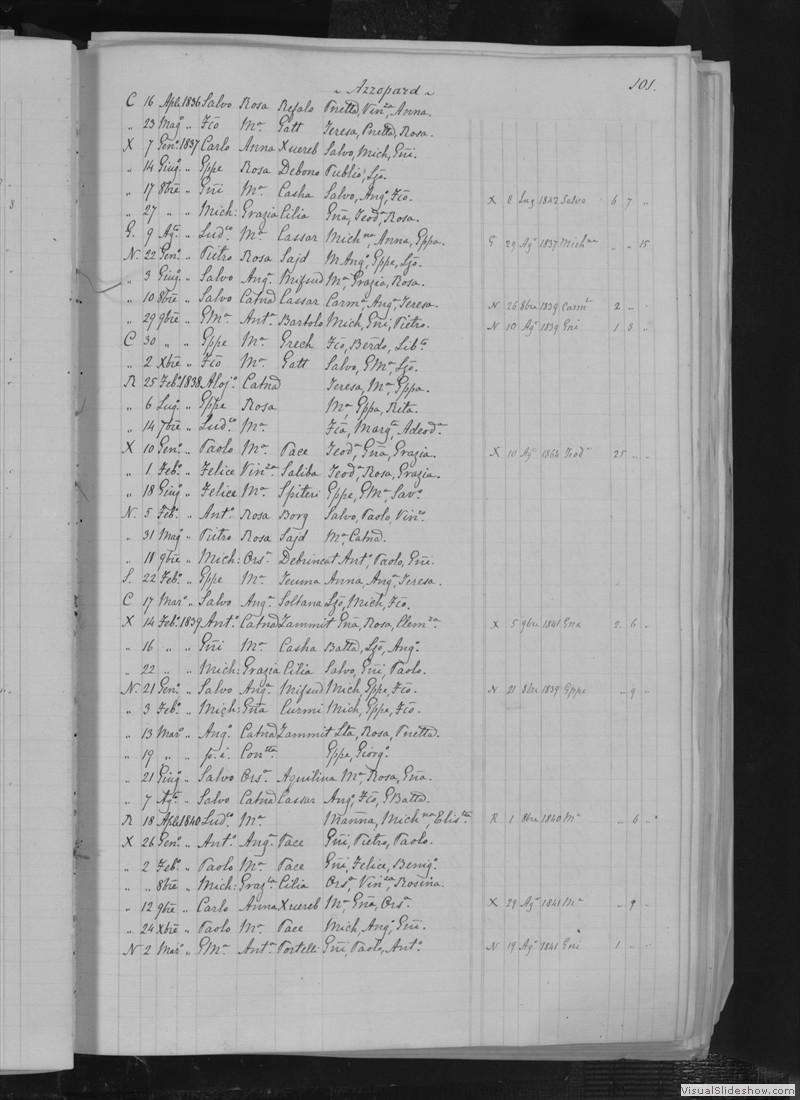 101.
~ Azzopard ~
C 16 Aple 1836 Salvo Rosa Refalo Pnetta, Vinza, Anna.
„ 23 Maggo „ Fco Ma Gatt Teresa, Pnetta, Rosa.
X 7 Geno 1837 Carlo Anna Xuereb Salvo, Mich, Gni.
„ 14 Giugo „ Gppe Rosa Debono Publio, Ljo.
„ 17 8bre „ Gni Ma Casha Salvo, Ango, Fco. X 8 Lug 1842 Salvo 6 7 „
„ 27 „ „ Mich: Grazia Cilia Gna, Teoda, Rosa.
G. 9 Ago „ Ludco Ma Cassar Michna, Anna, Gppa. G 29 Ago 1837 Michna „ „ 15
N. 22 Geno „ Pietro Rosa Sajd MAnga, Gppe, Ljo.
„ 3 Giugo „ Salvo Anga Mifsud Ma, Grazia, Rosa.
„ 10 8bre „ Salvo Catna Cassar Carmo, Anga, Teresa. N 26 8bre 1839 Carmo 2 „ „
„ 29 9bre „ GMa Anta Bartolo Mich, Gni, Pietro. N 10 Ago 1839 Gni 1 8 „
C 30 „ „ Gppe Ma Grech Fco, Berdo, Libta.
„ 2 Xbre „ Fco Ma Gatt Salvo, GMa, Ljo.
R 25 Febo 1838 Alojo Catna Teresa, Ma, Gppa.
„ 6 Lugo „ Gppe Rosa Ma, Gppa, Rita.
„ 14 7bre „ Ludco Ma Fca, Marga, Adeoda.
X 10 Geno „ Paolo Ma Pace Teoda, Gna, Grazia. X 10 Ago 1864 Teoda 25 „ „
„ 1 Febo „ Felice Vinza Saliba Teoda, Rosa, Grazia.
„ 18 Giugo „ Felice Ma Spiteri Gppe, GMa, Savo.
N. 5 Febo „ Anto Rosa Borg Salvo, Paolo, Vinzo.
„ 31 Mago „ Pietro Rosa Sajd Ma Catna.
„ 11 9bre „ Mich: Orsa Debrincat Anto, Paolo, Gni.
S. 22 Febo „ Gppe Ma Teuma Anna, Anga, Teresa.
C 17 Maro „ Salvo Anga Soltana Ljo, Mich, Fco.
X 14 Febo 1839 Anto Catna Zammit Gna, Rosa, Clemza. X 5 9bre 1841 Gna 2 6 „
„ 16 „ „ Gni Ma Casha Batta, Ljo, Ango.
„ 22 „ „ Mich: Grazia Cilia Salvo, Gni, Paolo.
N. 21 Geno „ Salvo Anga Mifsud Mich, Gppe, Fco. N 21 8bre 1839 Gppe „ 9 „
„ 3 Febo „ Mich: Gna Curmi Mich, Gppe, Fco.
„ 13 Maro „ Ango Catna Zammit Lta, Rosa, Pnetta.
„ 19 „ „ p.i. Contta Gppe, Giorgo.
„ 21 Giugo „ Salvo Orsa Aquilina Ma, Rosa, Gna.
„ 7 Ago „ Salvo Catna Cassar Ango, Fco, GBatta.
R 18 Aple 1840 Ludco Ma Marina, Michna Elista. R 1 8bre 1840 Ma „ 6 „
X 26 Geno „ Anto Anga Pace Gni, Pietro, Paolo.
„ 2 Febo „ Paolo Ma Pace Gni, Felice, Benigo.
„ „ 8bre „ Mich: Grazia Cilia Orsa, Vinza, Rosina.
„ 12 9bre „ Carlo Anna Xuereb Ma, Gna, Orsa. X 29 Ago 1841 Ma „ 9 „
„ 24 Xbre „ Paolo Ma Pace Mich, Ango, Gni.
N 2 Maro „ GMa Anta Portelli Gni, Paolo, Anto. N 19 Ago 1841 Gni 1 „ „
VisualSlideshow.com